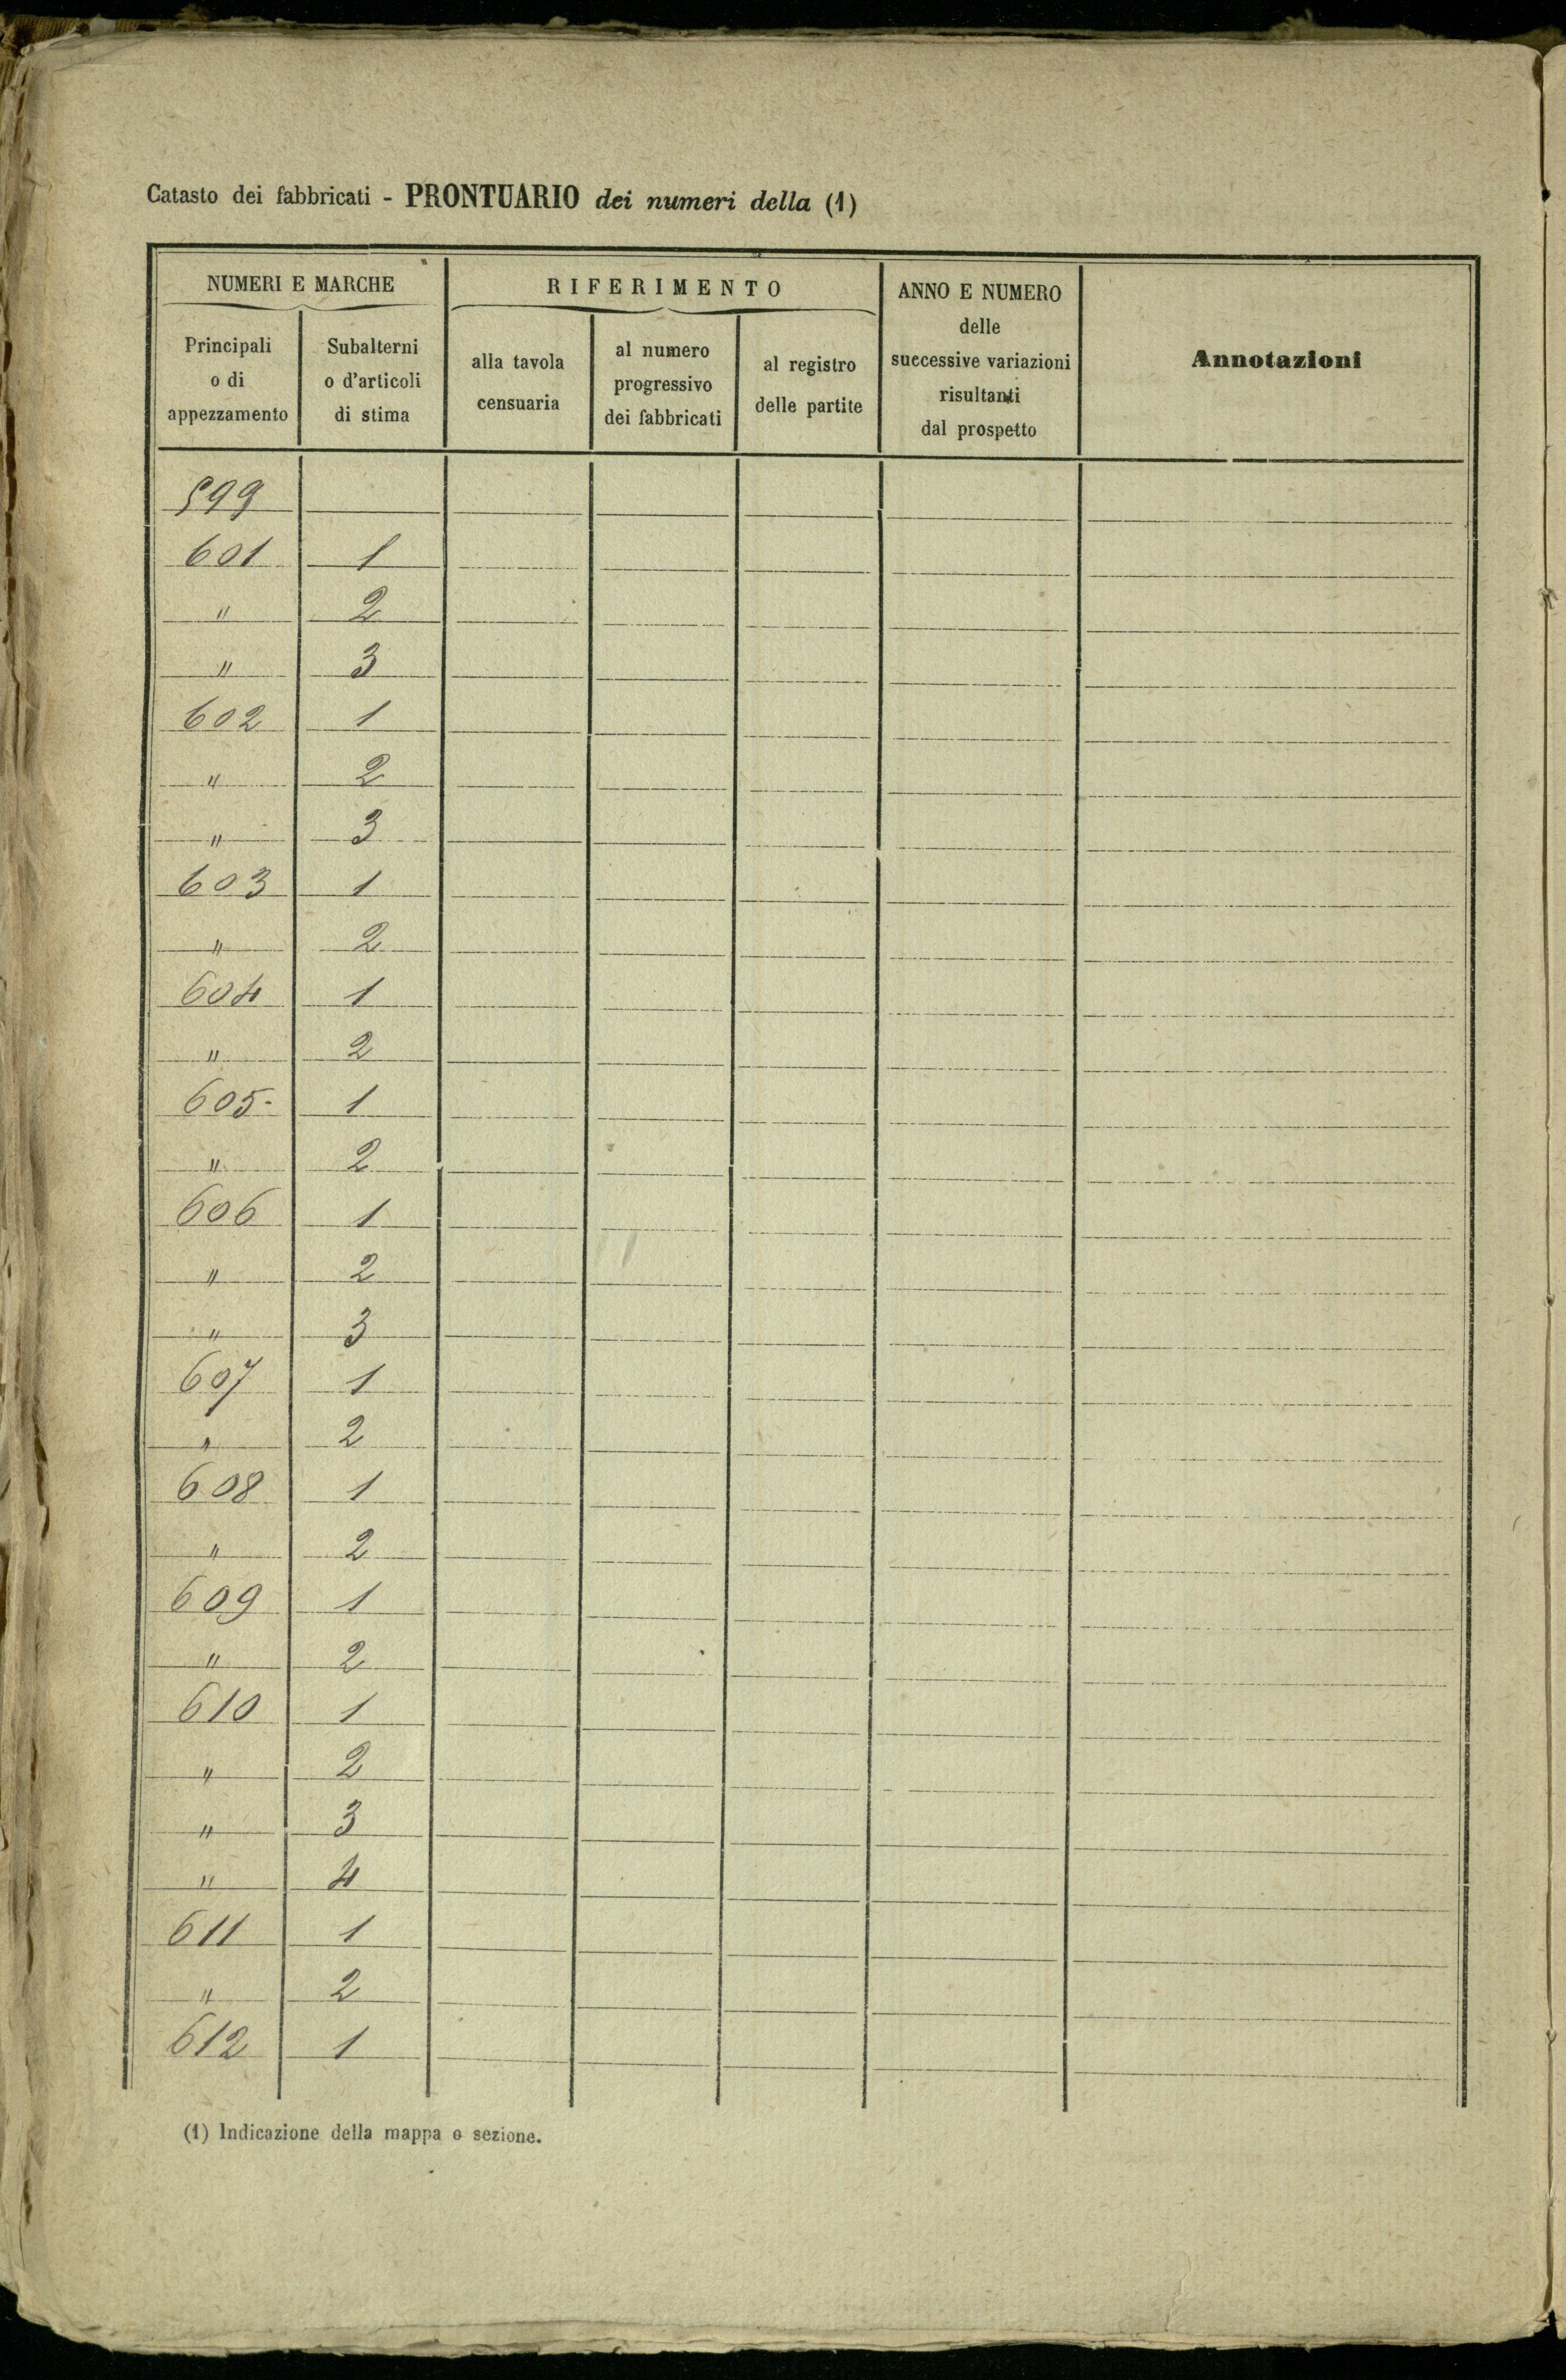 Catasto dei fabbricati - PRONTUARIO dei numeri della (1)
NUMERI E MARCHE
RIFERIMENTO
ANNO E NUMERO
delle
successive variazioni
risultanti
dal prospetto
Annotazioni
Principali
o di
appezzamento
Subalterni
o d'articoli
di stima
alla tavola
censuaria
al numero
progressivo
dei fabbricati
al registro
delle partite
599
601 1
" 2
" 3
602 1
" 2
" 3
603 1
" 2
604 1
" 2
605- 1
" 2
606 1
" 2
" 3
607 1
" 2
608 1
" 2
609 1
" 2
610 1
" 2
" 3
" 4
611 1
" 2
612 1
(1) Indicazione della mappa o sezione.